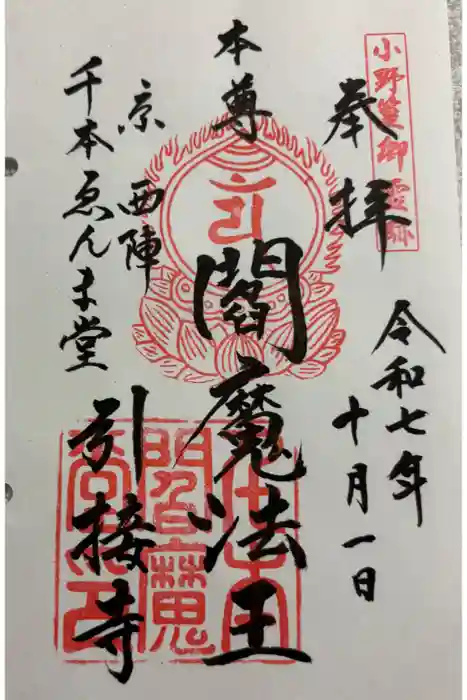 小野篁卿霊跡
奉拝
令和七年
十月一日
本尊
閻魔法王
京西陣
千本ゑんま堂
引接寺